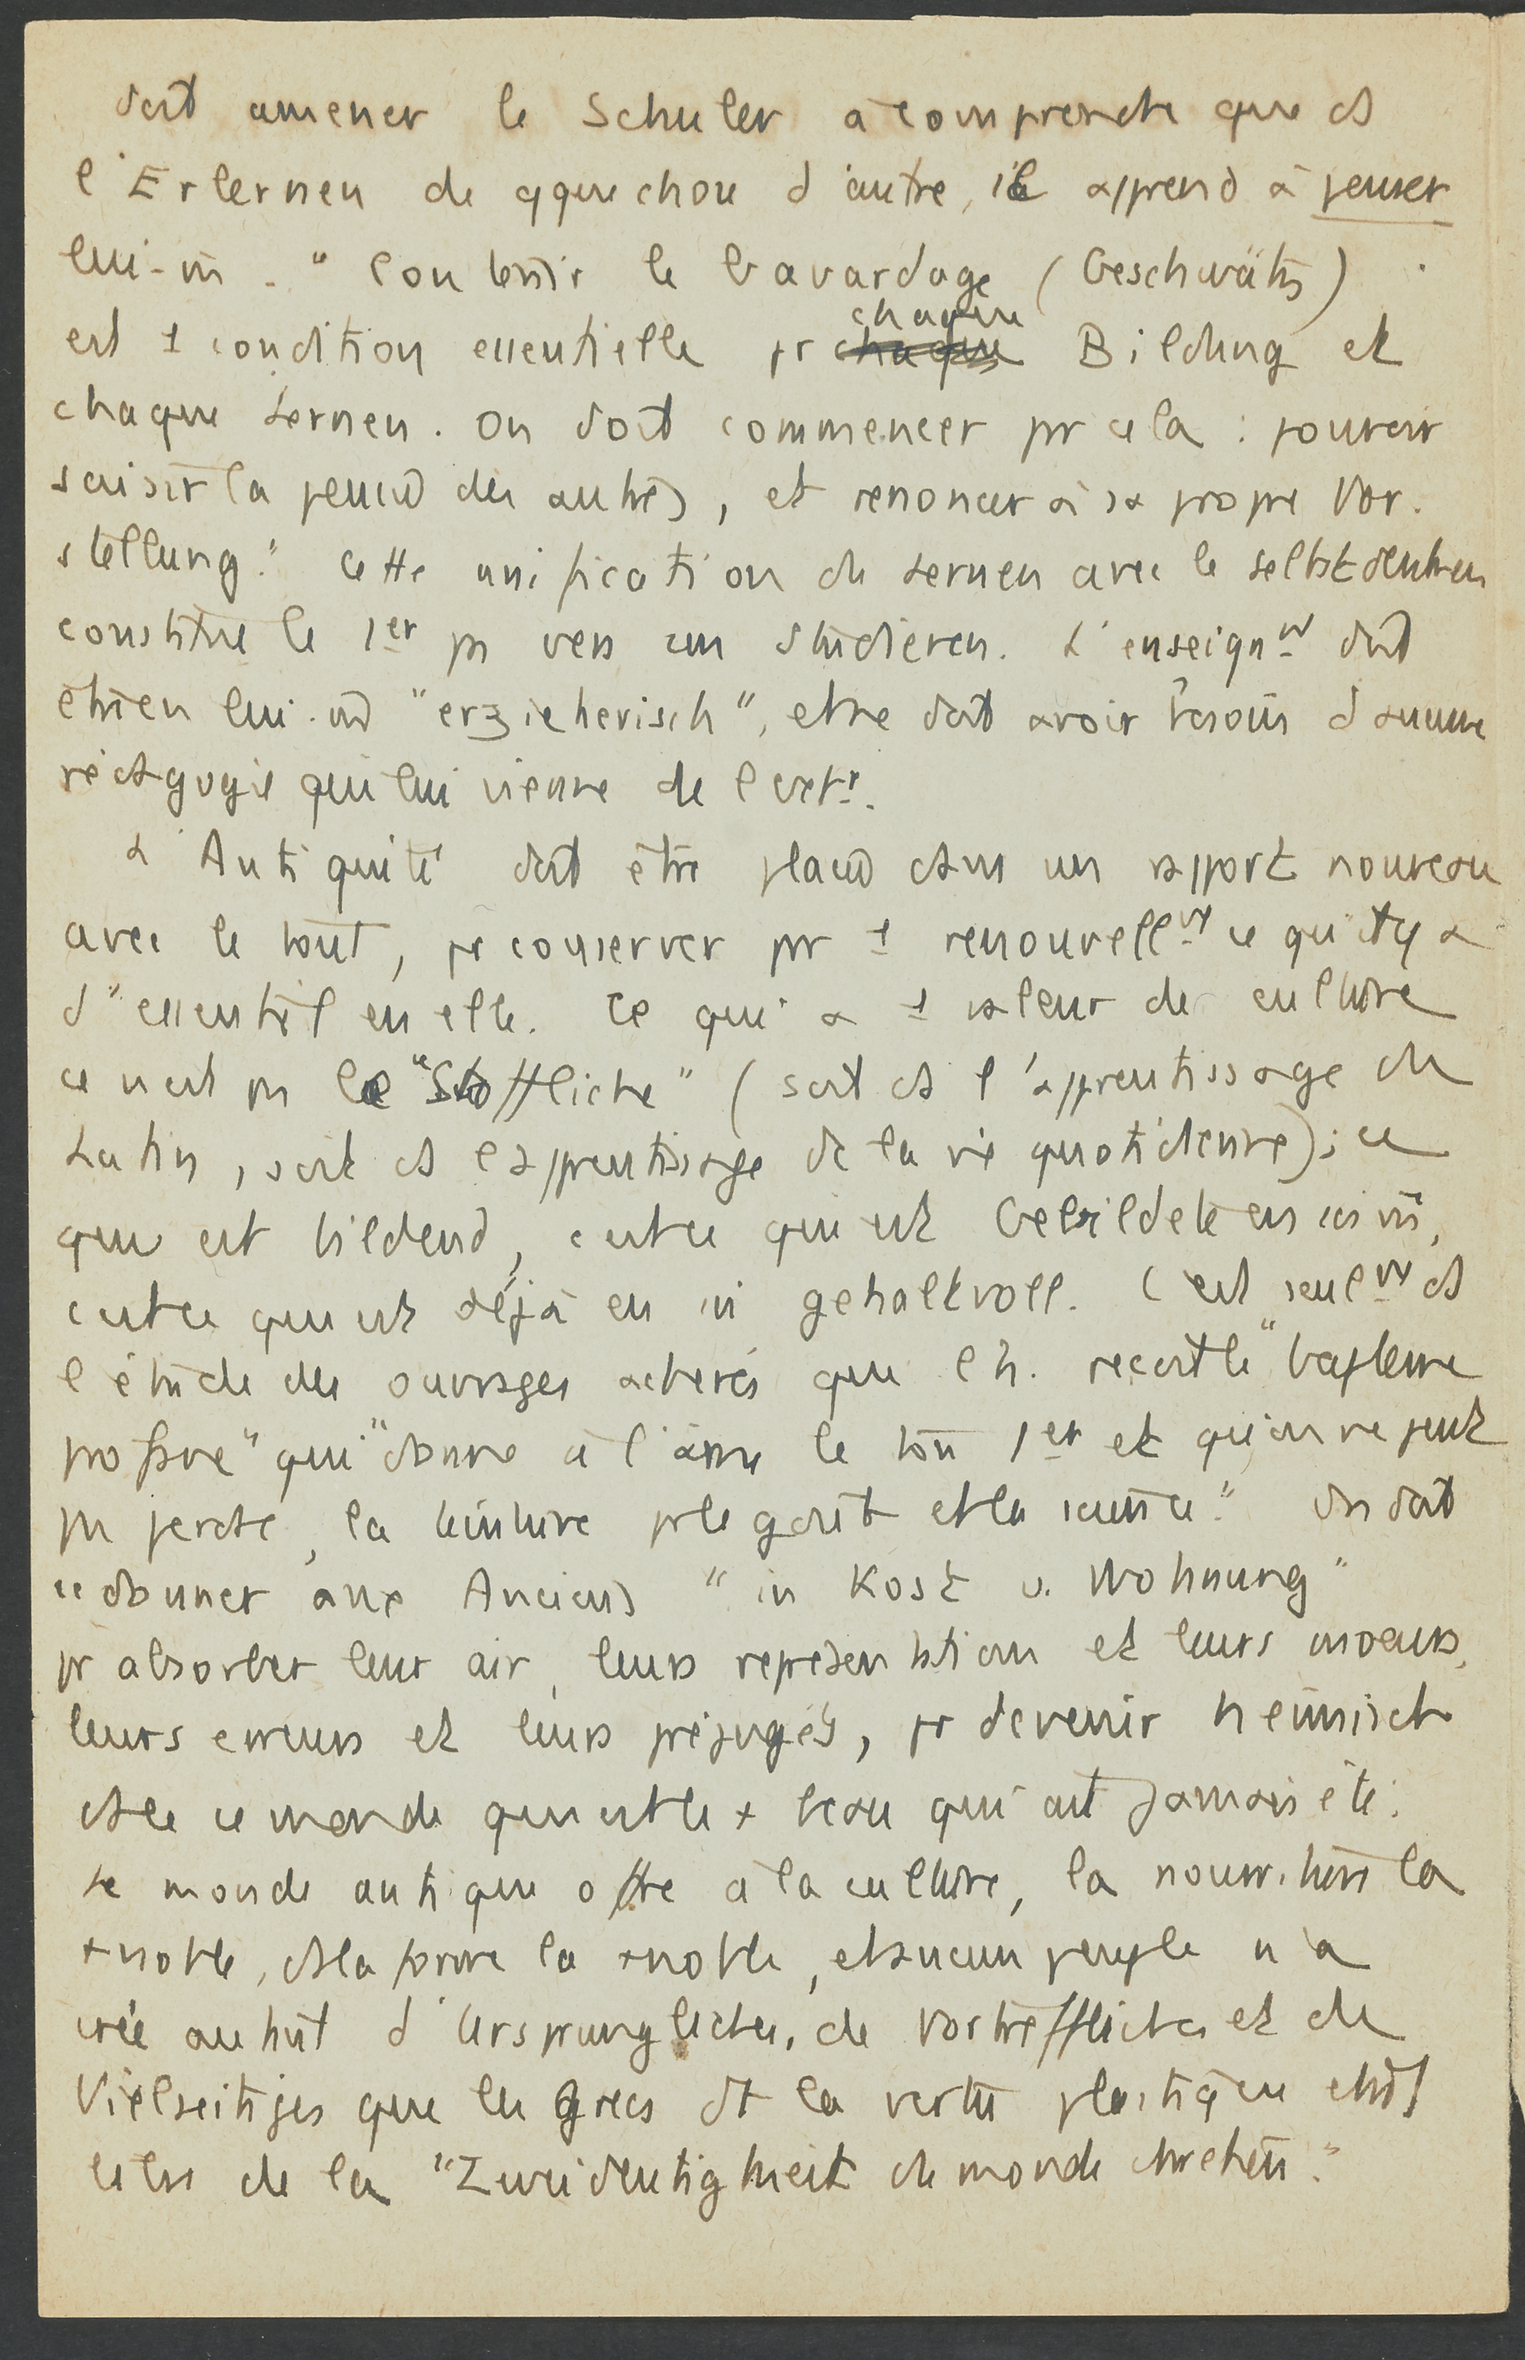 doit amener le Schuler à comprendre que ds
l'Erlernen de qque chose d'autre, il apprend à penser
lui-m̄. "Contenir le bavardage (Geschwätz)
est 1 condition essentielle pr chaque Bildung et
chaque Lernen. On doit commencer pr cela : pouvoir
saisir la pensée des autres, et renoncer à sa propre Vor-
stellung." Cette unification du Lernen avec le selbstdenken
constitue le 1er pas vers un studieren. L'enseignt doit
être en lui-m̄ "erzieherisch", et ne doit avoir besoin d'aucune
pédagogie qui lui vienne de l'extr.
L'Antiquité doit être placée dans un rapport nouveau
avec le tout, pr conserver pr 1 renouvellt ce qu'il y a
d'essentiel en elle. Ce qui a 1 valeur de culture
ce n'est pas le "Stoffliche" (soit ds l'apprentissage du
Latin, soit ds l'apprentissage de la vie quotidienne); ce
qui est bildend, c'est ce qui est Gebildete en soi m̄,
c'est ce qui est déjà en soi gehaltvoll. C'est seult ds
l'étude des ouvrages achevés que l'h. reçoit le "baptême
profane" qui "donne à l'âme le ton 1er et qu'on ne peut
pas perdre, la teinture pr le goût et la science." On doit
se donner aux Anciens "in Kost u. Wohnung"
pr absorber leur air, leurs représentations et leurs moeurs,
leurs erreurs et leurs préjugés, pr devenir heimisch
ds ce monde qui est le + beau qui ait jamais été.
Le monde antique offre à la culture, la nourriture la
+ noble, ds la forme la + noble, et aucun peuple n'a
créé autant d'Ursprungliches, de Vortreffliches et de
Vielseitiges que les Grecs dt la vertu plastique était
libre de la "Zweideutigkeit du monde chrétien."